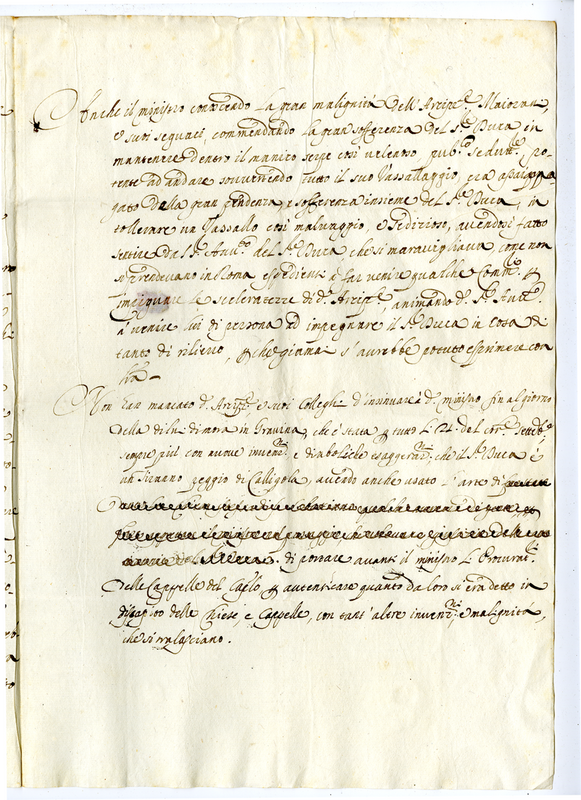 Anche il ministro conoscendo la gran malignità dell' Arcip.e Maioran,
e suoi seguaci, commendando la gran sofferenza del S.r Duca in
mantenere dentro il manico serpe così velenoso, pub.o sedutt.e, po-
tente ad andare sovvertendo tutto il suo Vassallaggio,
gato dalla gran prudenza, e sofferenza insieme del S.r Duca, in
tollerare un Vassallo così malvaggio, e sedizioso, avendosi fatto
sentire da S.r Ant.o del S.r Duca, che si maravigliava come non
si prendevano in Roma espedienti a far venire qualche
le sceleratezze di d.o Arcip.e, animando d.o S.r Ant.o
a venire lui di persona ad impegnare il S.r Duca in cosa di
tanto di rilievo, che giamai s' avrebbe potuto esprimere con
Non han mancato d.o Arcip.e e suoi Colleghi d' insinuare a d.o ministro fin al giorno
della di lui dimora in Gravina, che è stata tutto li del cor.e
sempre più con nuove inven.ni e diaboliche esaggeraz.ni che il S.r Duca è
un Tiranno peggio di Calligola, avendo anche usato l' arte di
di portare avanti il ministro li Procurat.ri
delle Cappelle del Capitolo autenticare quanto da loro si era detto in
disapito delle Chiese e Cappelle, con tant' altre inven.ni e malignità,
che si tralasciano.